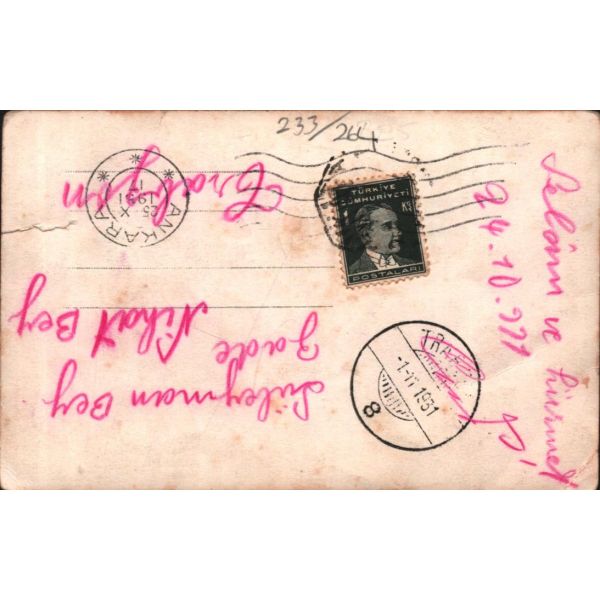 233/264
TÜRKİYE
CÜMHURİYETİ
1 KS
POSTALARI
ANKARA
25 X
1931
-1-11 1931
8
Süleyman Bey
Zade Nihat Bey
Trabzon
Selâm ve hürmet
24.10.931